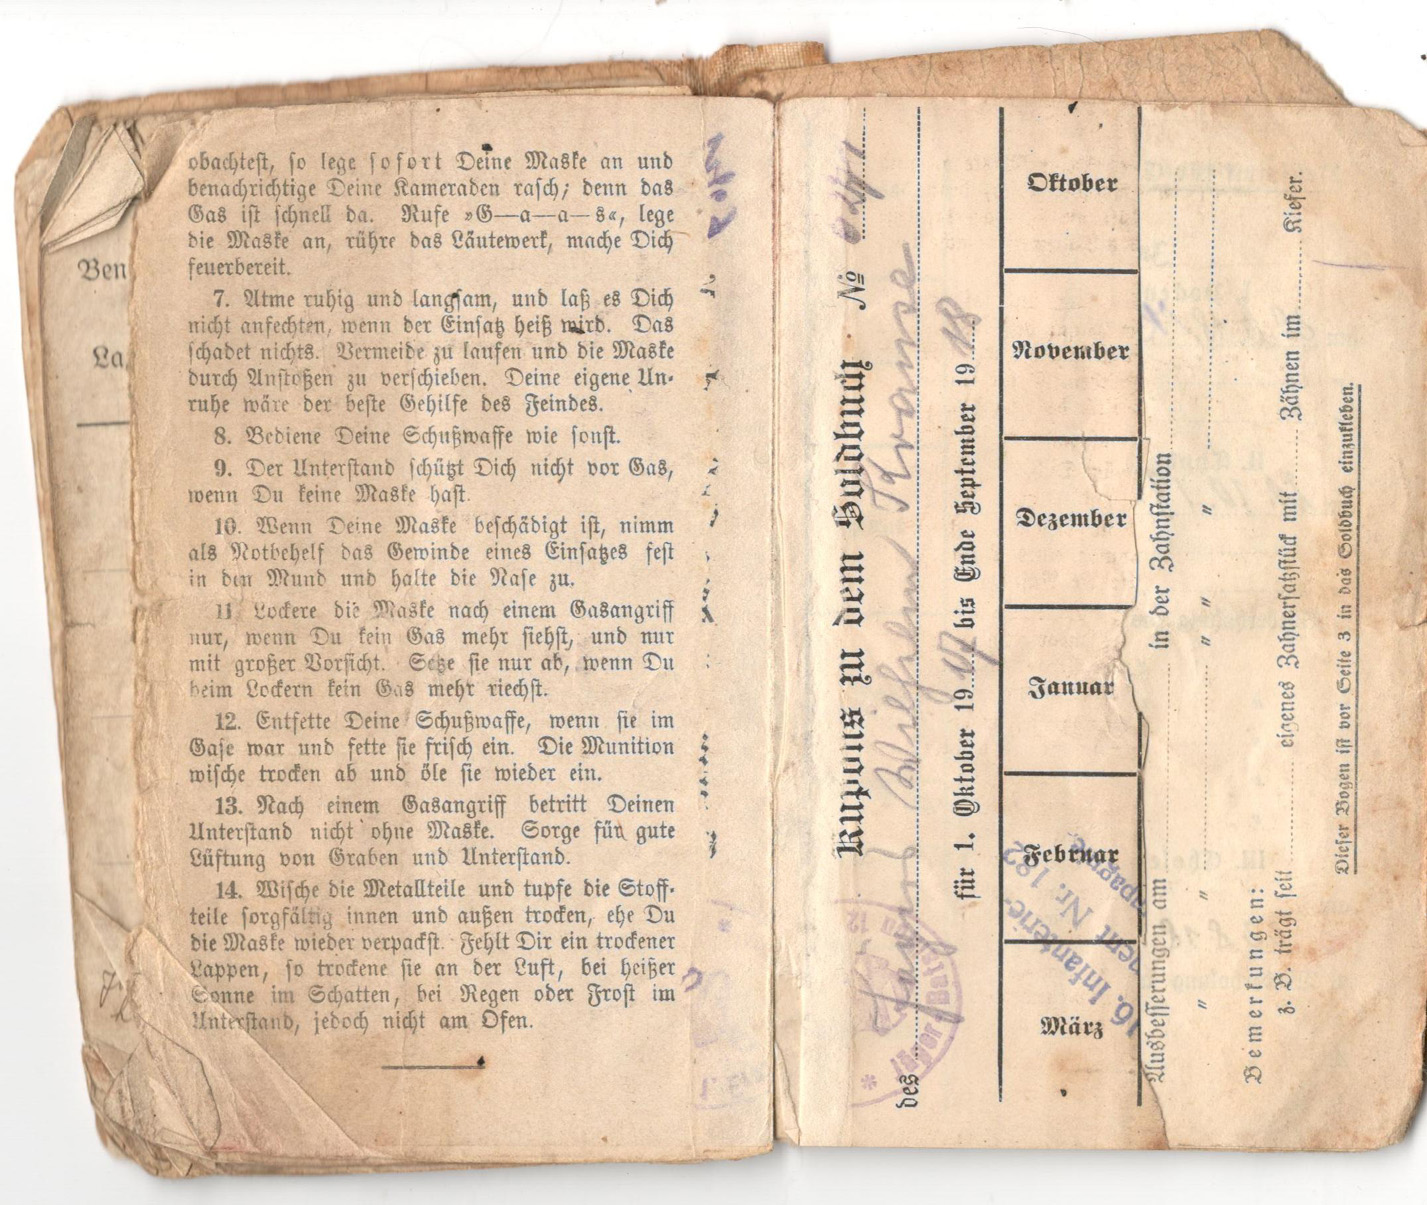 obachtest, so lege sofort Deine Maske an und
benachrichtige Deine Kameraden rasch; denn das
Gas ist schnell da. Rufe »G—a—a—s«, lege
die Maske an, rühre das Läutewerk, mache Dich
feuerbereit.
7. Atme ruhig und langsam, und laß es Dich
nicht anfechten, wenn der Einsatz heiß wird. Das
schadet nichts. Vermeide zu laufen und die Maske
durch Anstoßen zu verschieben. Deine eigene Un-
ruhe wäre der beste Gehilfe des Feindes.
8. Bediene Deine Schußwaffe wie sonst.
9. Der Unterstand schützt Dich nicht vor Gas,
wenn Du keine Maske hast.
10. Wenn Deine Maske beschädigt ist, nimm
als Notbehelf das Gewinde eines Einsatzes fest
in den Mund und halte die Nase zu.
11. Lockere die Maske nach einem Gasangriff
nur, wenn Du kein Gas mehr siehst, und nur
mit großer Vorsicht. Setze sie nur ab, wenn Du
beim Lockern kein Gas mehr riechst.
12. Entfette Deine Schußwaffe, wenn sie im
Gase war und fette sie frisch ein. Die Munition
wische trocken ab und öle sie wieder ein.
13. Nach einem Gasangriff betritt Deinen
Unterstand nicht ohne Maske. Sorge für gute
Lüftung von Graben und Unterstand.
14. Wische die Metallteile und tupfe die Stoff-
teile sorgfältig innen und außen trocken, ehe Du
die Maske wieder verpackst. Fehlt Dir ein trockener
Lappen, so trockene sie an der Luft, bei heißer
Sonne im Schatten, bei Regen oder Frost im
Unterstand, jedoch nicht am Ofen.
Ben
La
Kupons zu dem Soldbuch №
des Wilhelm Kramer
für 1. Oktober 1917 bis Ende September 1918
Oktober
November
Dezember
Januar
Februar
März
16. Infanterie-
Nr. 182
Jäger Bats
Ausbesserungen am in der Zahnstation
" " "
Bemerkungen:
z. B. trägt seit eigenes Zahnersatzstück mit Zähnen im Kiefer.
Dieser Bogen ist vor Seite 3 in das Soldbuch einzukleben.